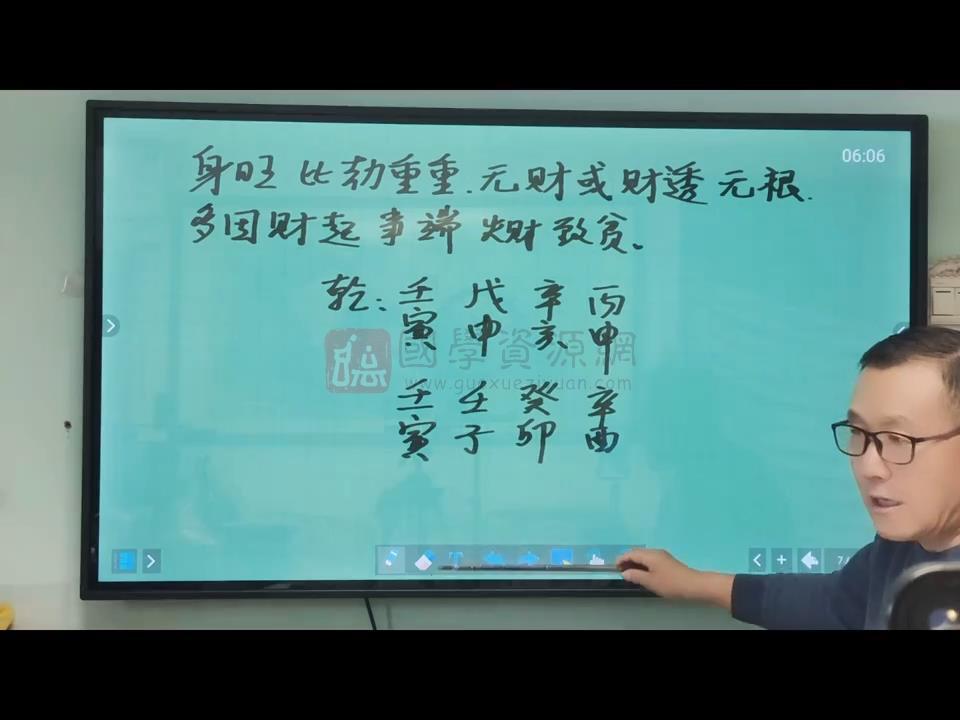 06:06
身旺比劫重重.无财或财透无根.
多因财起事端 发财致贫。
乾: 壬 戊 辛 丙
寅 申 亥 申
國學資源網
www.guoxueziyuan.com
壬 壬 癸 辛
寅 子 卯 酉